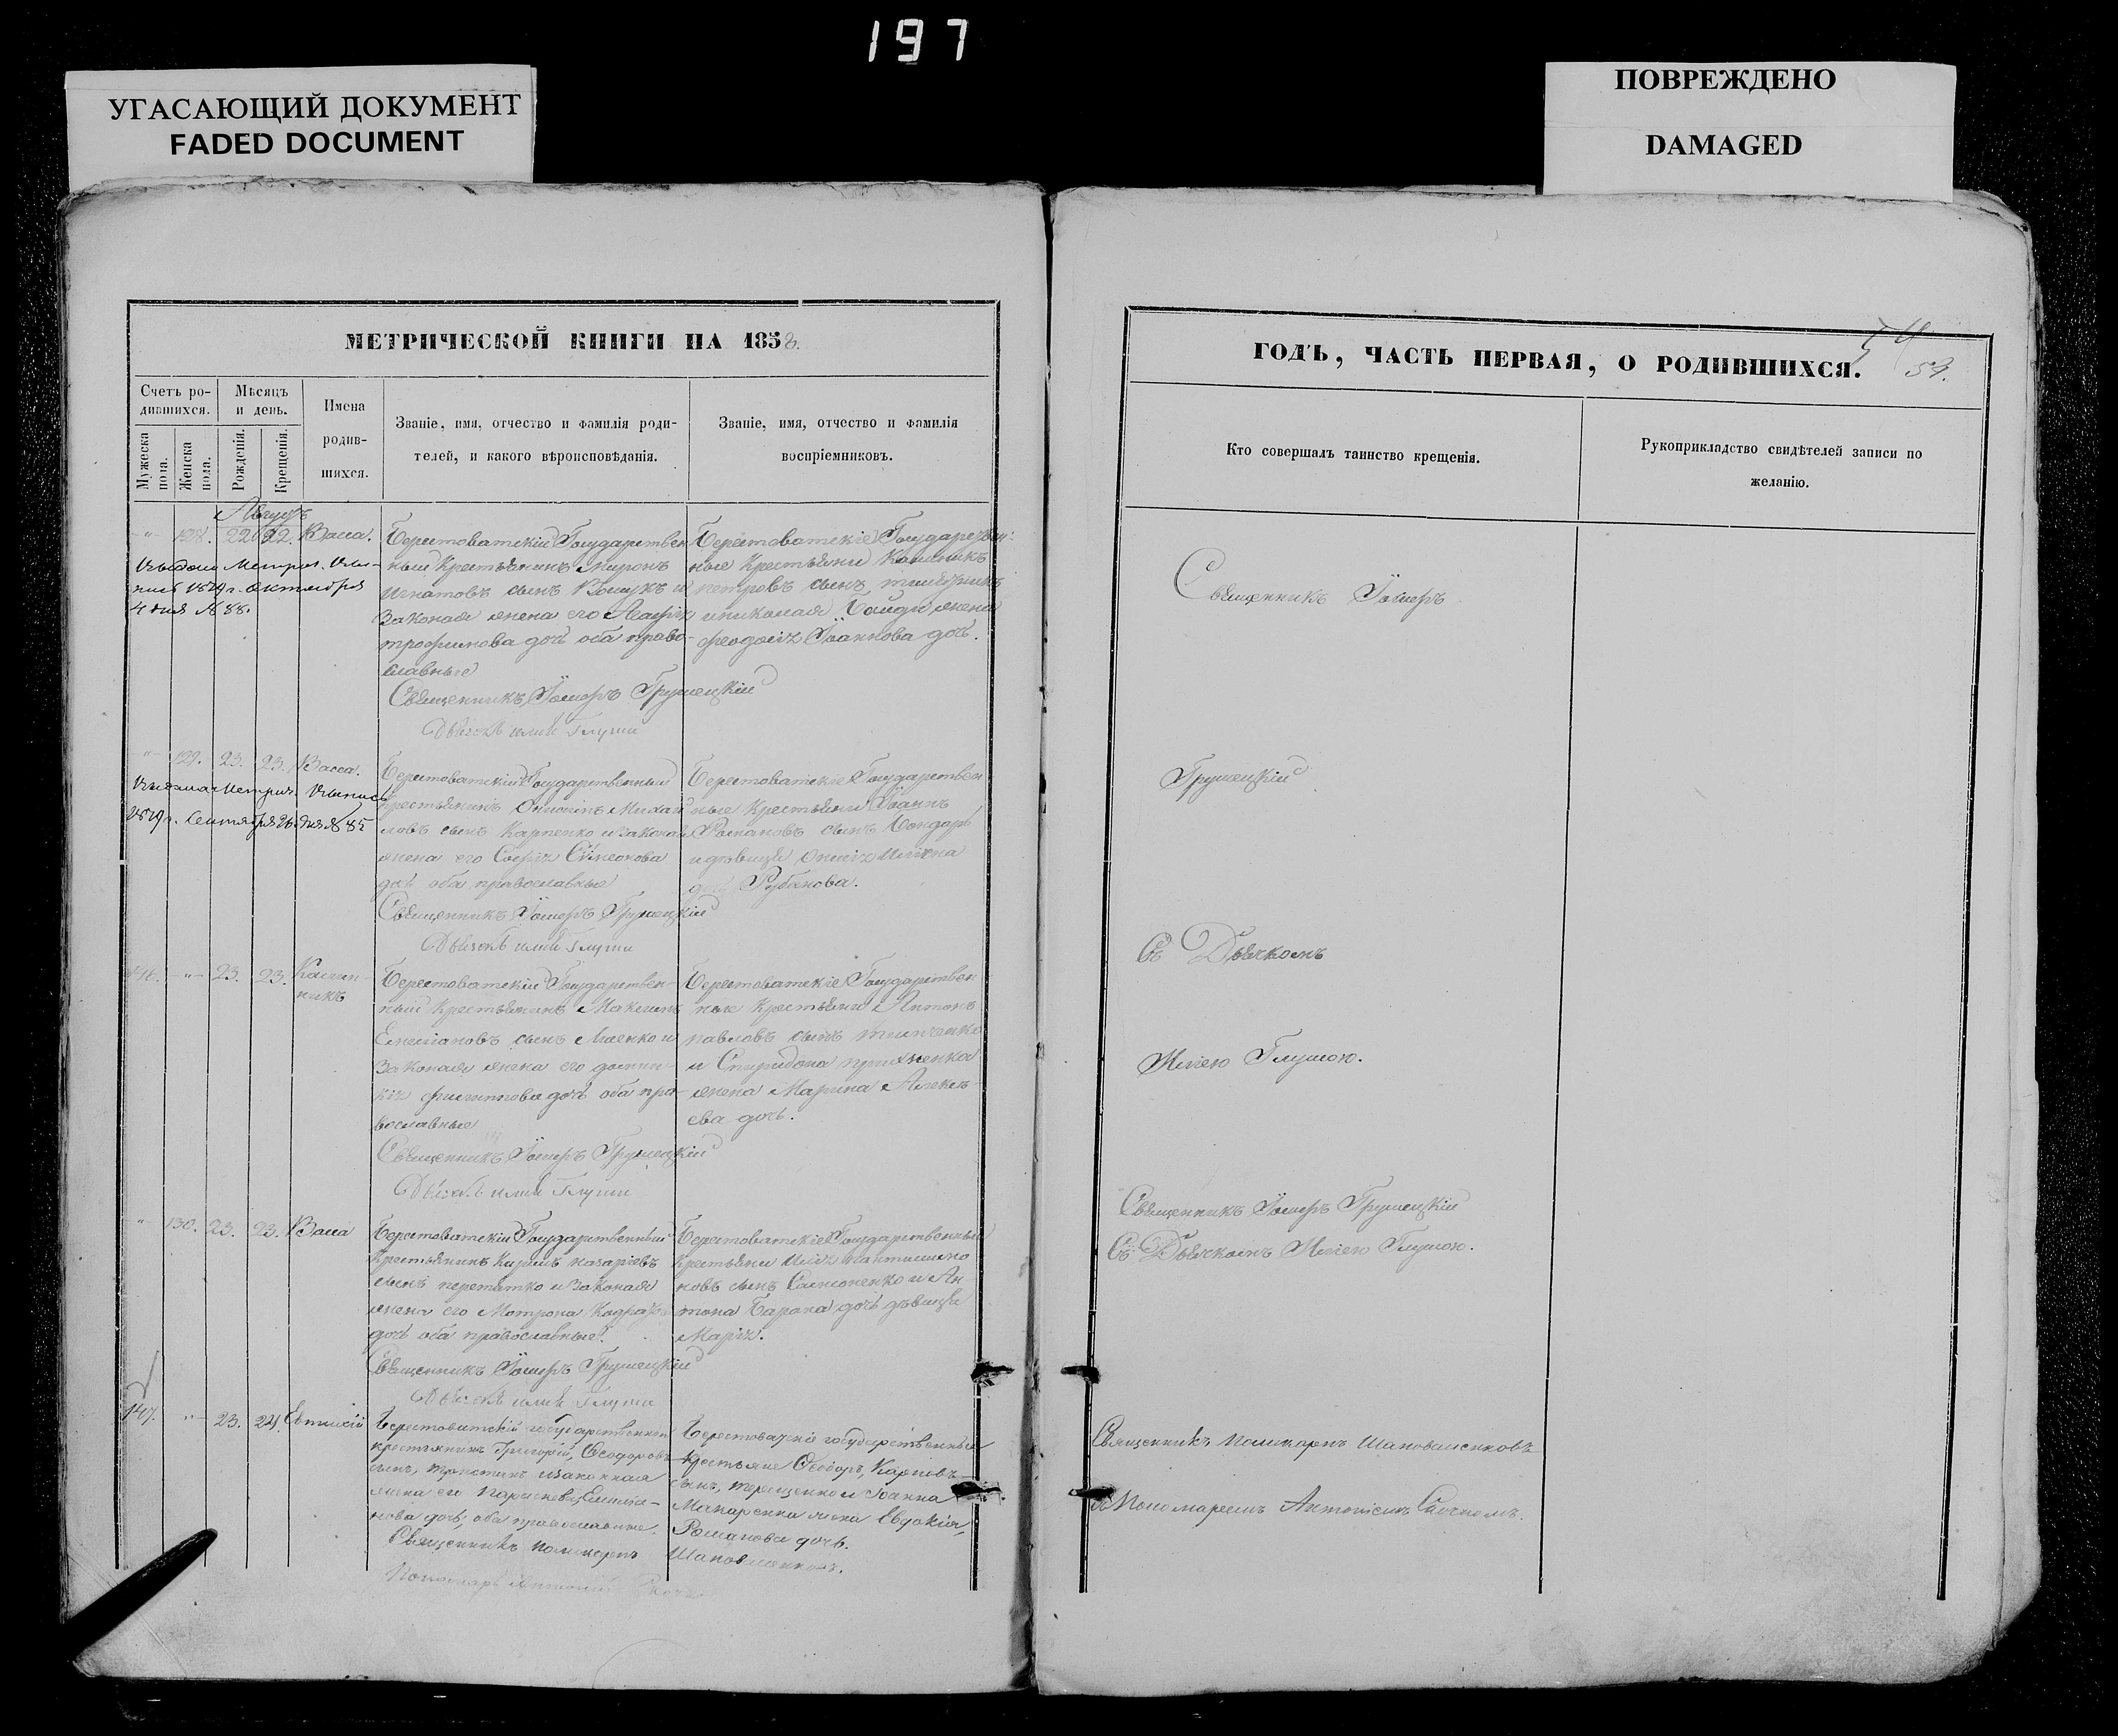 197
УГАСАЮЩИЙ ДОКУМЕНТ
FADED DOCUMENT
ПОВРЕЖДЕНО
DAMAGED
МЕТРИЧЕСКОЙ КНИГИ НА 1858.
Счетъ ро-
дившихся.
Мѣсяцъ
и день.
Мужеска
пола.
Женска
пола.
Рожденія.
Крещенія.
Имена
родив-
шихся.
Званіе, имя, отчество и фамилія роди-
телей, и какого вѣроисповѣданія.
Званіе, имя, отчество и фамилія
воспріемниковъ.
Августъ
128. 22 22. Васса.
Берестоватскій Государствен
ный Крестьянинъ Миронъ
Игнатовъ сынъ и
Законая жена его Агафія
трофимова дочь оба право-
славные
Священникъ Іосифъ Грушецкій
Дьячекъ Илія Глуши
Берестоватскіе Государствен-
ные Крестьяни Калиникъ
петровъ сынъ
и николая жена
феодосія Іоаннова дочь.
Выдана Метрич. Выпись
1879 г. октября
4 дня № 88.
129. 23. 23. Васса.
Берестоватскій Государственный
крестьянинъ Онисимъ Михай
ловъ сынъ Карпенко и законая
жена его Софія Сѷмеонова
дочь оба православные
Священникъ Іосифъ Грушецкій
Дьячекъ Илія Глуши
Берестоватскіе Государствен
ные крестьяни Іоаннъ
Романовъ сынъ Бондарь
и дѣвица
дочь Рубанова.
Выдана Метрич. Выпись
1879 г. Сентября 26 дня № 85
146. 23. 23. Калин-
никъ
Берестоватскій Государствен-
ный крестьянинъ Максимъ
сынъ и
Законая жена его домни-
кія филиппова дочь оба пра-
вославные
Священникъ Іосифъ Грушецкій
Дьячекъ Илія Глуши
Берестоватскіе Государствен
ные крестьяни Антонъ
павловъ сынъ
и Спиридона
жена Марина Алексѣ-
ева дочь.
130. 23. 23. Васса
Берестоватскій Государственный
крестьянинъ Кирилъ назаріевъ
сынъ перетятко и законая
жена его Мотрона
дочь оба православные.
Священникъ Іосифъ Грушецкій
Дьячекъ Илія Глуши
Берестоватскіе Государственные
крестьяни Илія
новъ сынъ Самоненко и Ан
тона Барана дочь дѣвица
Марія.
147. 23. 24. Евтихій
Берестоватскій государственной
крестьянинъ Григорій, Феодоровъ
сынъ, и законная
жена его Параскева, Емилія-
нова дочь, оба православные.
Священникъ Поликарпъ Шаповаленковъ.
Пономарь Антоній
Берестоватскіе государственные
крестьяне Феодоръ, Карповъ
сынъ, терещенко и Іоанна
Макаренка жена Евдокія,
Романова дочь.
ГОДЪ, ЧАСТЬ ПЕРВАЯ, О РОДИВШИХСЯ.
59.
Кто совершалъ таинство крещенія.
Рукоприкладство свидѣтелей записи по
желанію.
Священникъ Іосифъ
Грушецкій
Съ Дьячкомъ
Иліею Глушою.
Священникъ Іосифъ Грушецкій
Съ Дьячкомъ Иліею Глушою.
Священникъ Поликарпъ Шаповаленковъ
Пономаремъ Антоніемъ